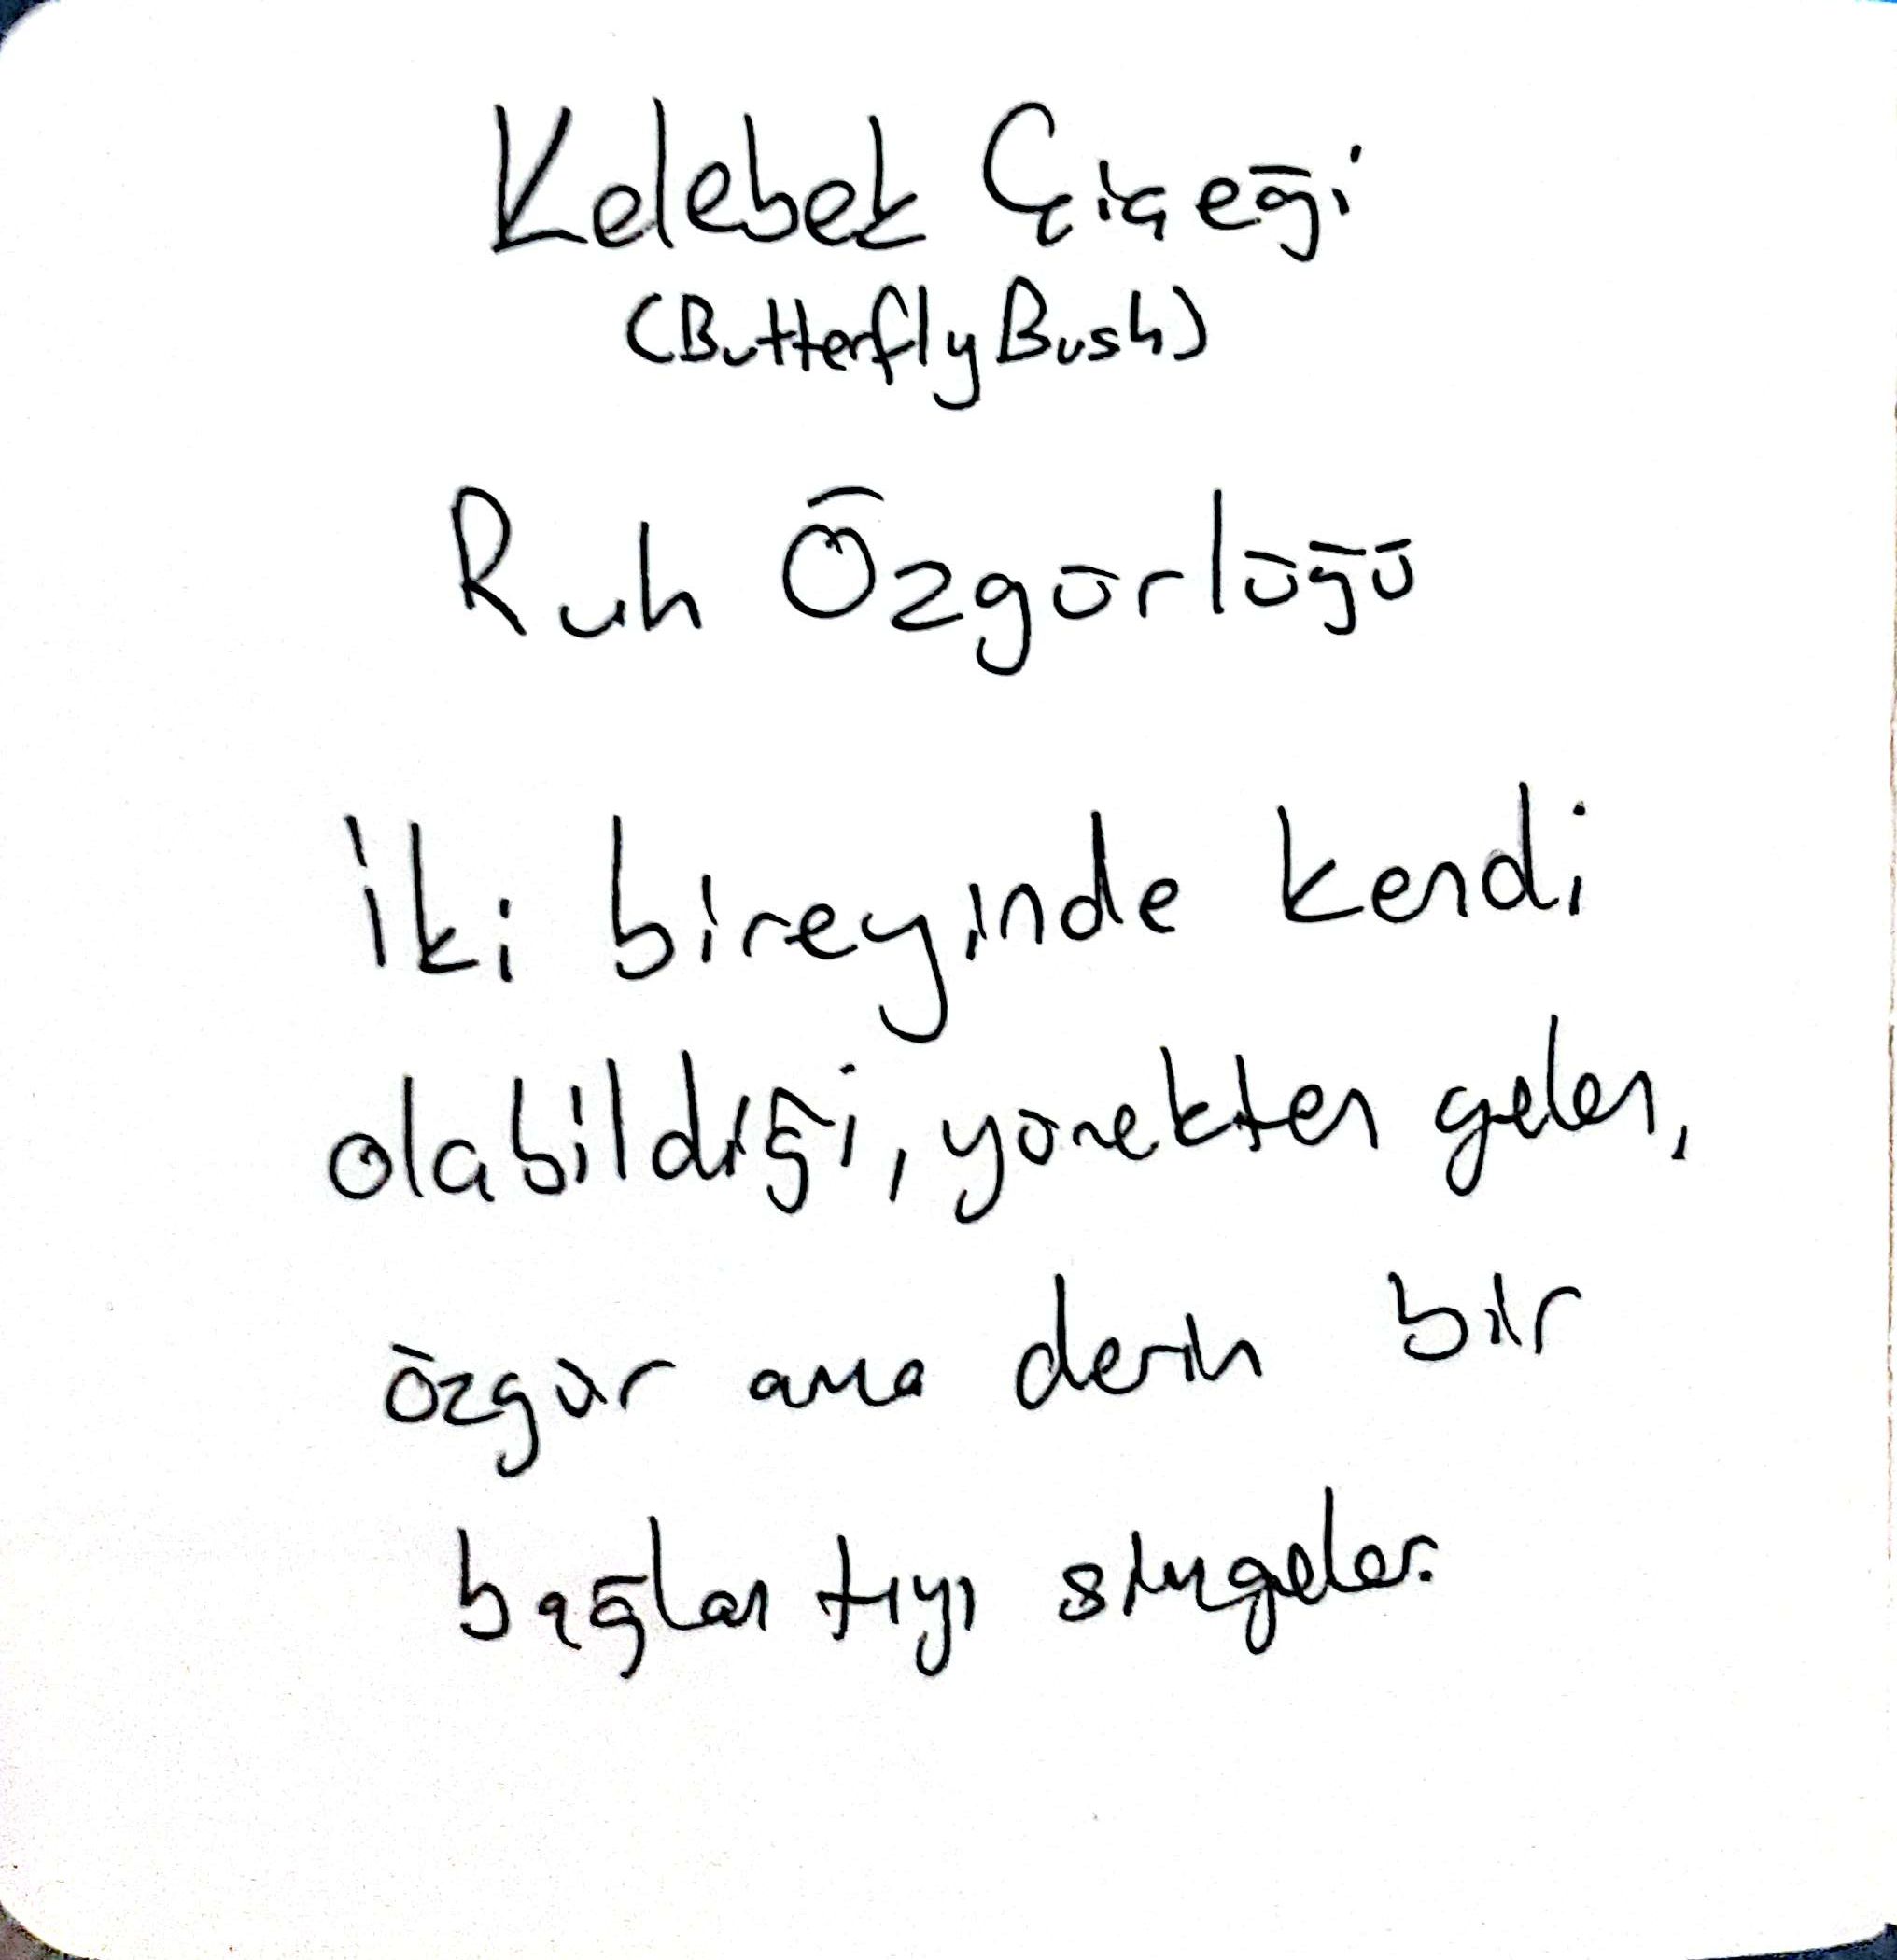 Kelebek Çiçeği
(Butterfly Bush)
Ruh Özgürlüğü
İki bireyinde kendi
olabildiği, yürekten gelen,
özgür ama derin bir
bağlantıyı simgeler.